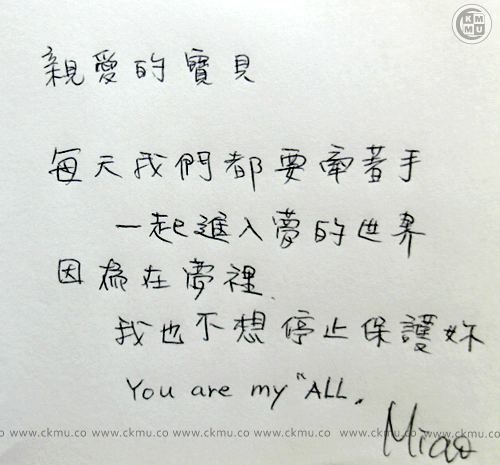 CK
MU
親愛的寶貝
每天我們都要牽著手
一起進入夢的世界
因為在夢裡
我也不想停止保護妳
You are my "ALL.
www.ckmu.co www.ckmu.co www.ckmu.co www.ckmu.co www.ckmu.co www.ckmu.co
Miao